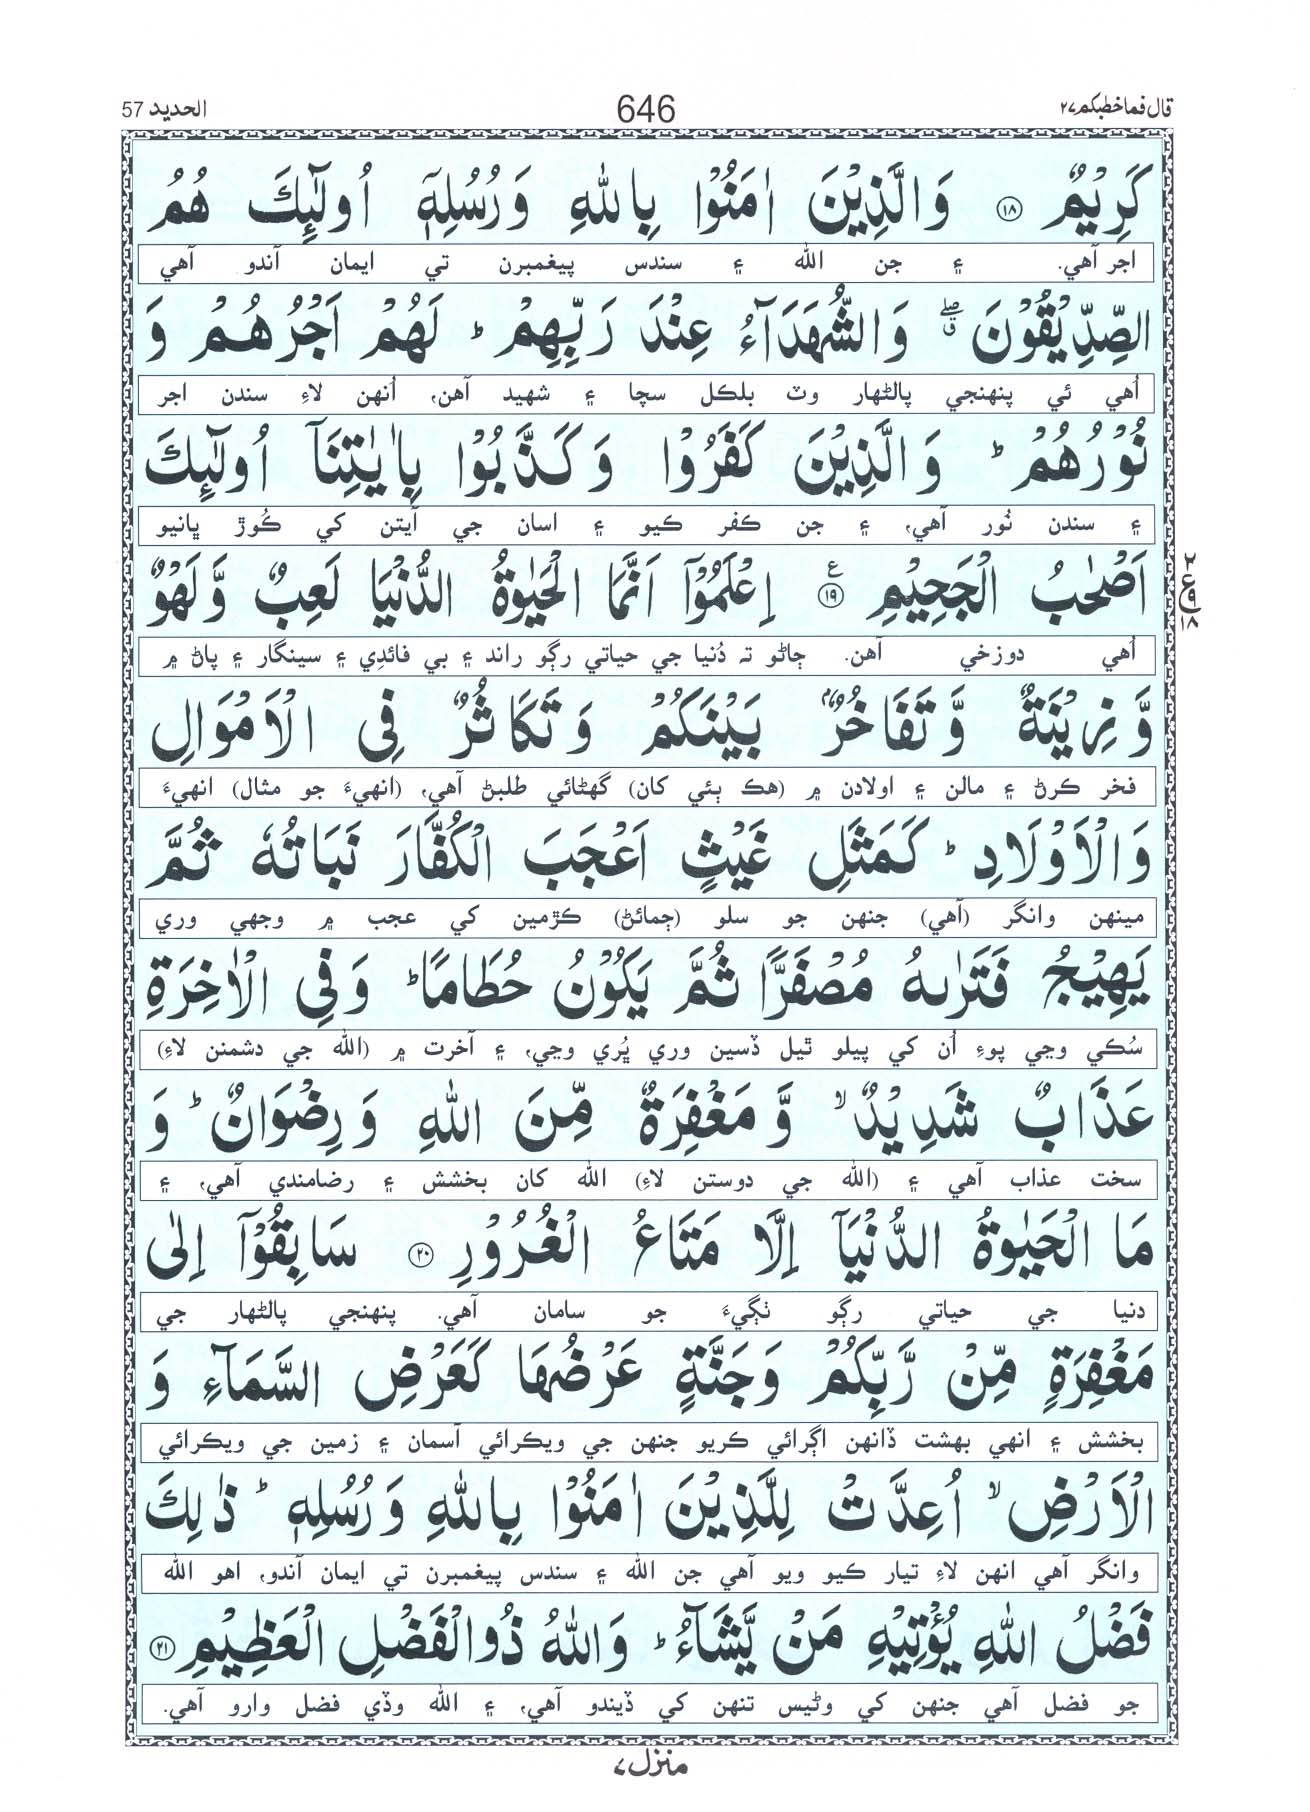 قال فما خطبکم ۲۷
646
الحديد 57
كَرِيْمٌ ۝۱۸ وَالَّذِيْنَ اٰمَنُوْا بِاللّٰهِ وَرُسُلِهٖۤ اُولٰٓئِكَ هُمُ
اجر آهي. ۽ جن الله ۽ سندس پيغمبرن تي ايمان آندو آهي
الصِّدِّيْقُوْنَ ۖۗ وَالشُّهَدَآءُ عِنْدَ رَبِّهِمْ ؕ لَهُمْ اَجْرُهُمْ وَ
اُهي ئي پنهنجي پالڻهار وٽ بلڪل سچا ۽ شهيد آهن، اُنهن لاءِ سندن اجر
نُوْرُهُمْ ؕ وَالَّذِيْنَ كَفَرُوْا وَكَذَّبُوْا بِاٰيٰتِنَاۤ اُولٰٓئِكَ
۽ سندن نُور آهي، ۽ جن ڪفر ڪيو ۽ اسان جي آيتن کي ڪُوڙ ڀانيو
اَصْحٰبُ الْجَحِيْمِ ۝۱۹ ع اِعْلَمُوْۤا اَنَّمَا الْحَيٰوةُ الدُّنْيَا لَعِبٌ وَّلَهْوٌ
۲ ع ۹ ۱۸
اُهي دوزخي آهن. ڄاڻو تہ دُنيا جي حياتي رڳو راند ۽ بي فائدي ۽ سينگار ۽ پاڻ ۾
وَّزِيْنَةٌ وَّتَفَاخُرٌۢ بَيْنَكُمْ وَتَكَاثُرٌ فِي الْاَمْوَالِ
فخر ڪرڻ ۽ مالن ۽ اولادن ۾ (هڪ ٻئي کان) گهڻائي طلبڻ آهي، (انهيءَ جو مثال) انهيءَ
وَالْاَوْلَادِ ؕ كَمَثَلِ غَيْثٍ اَعْجَبَ الْكُفَّارَ نَبَاتُهٗ ثُمَّ
مينهن وانگر (آهي) جنهن جو سلو (ڄمائڻ) ڪڙمين کي عجب ۾ وجهي وري
يَهِيْجُ فَتَرٰىهُ مُصْفَرًّا ثُمَّ يَكُوْنُ حُطَامًا ؕ وَفِي الْاٰخِرَةِ
سُڪي وڃي پوءِ اُن کي پيلو ٿيل ڏسين وري ڀُري وڃي، ۽ آخرت ۾ (الله جي دشمنن لاءِ)
عَذَابٌ شَدِيْدٌ ۙ وَّمَغْفِرَةٌ مِّنَ اللّٰهِ وَرِضْوَانٌ ؕ وَ
سخت عذاب آهي ۽ (الله جي دوستن لاءِ) الله کان بخشش ۽ رضامندي آهي، ۽
مَا الْحَيٰوةُ الدُّنْيَاۤ اِلَّا مَتَاعُ الْغُرُوْرِ ۝۲۰ سَابِقُوْۤا اِلٰى
دنيا جي حياتي رڳو ٺڳيءَ جو سامان آهي. پنهنجي پالڻهار جي
مَغْفِرَةٍ مِّنْ رَّبِّكُمْ وَجَنَّةٍ عَرْضُهَا كَعَرْضِ السَّمَآءِ وَ
بخشش ۽ انهي بهشت ڏانهن اڳرائي ڪريو جنهن جي ويڪرائي آسمان ۽ زمين جي ويڪرائي
الْاَرْضِ ۙ اُعِدَّتْ لِلَّذِيْنَ اٰمَنُوْا بِاللّٰهِ وَرُسُلِهٖ ؕ ذٰلِكَ
وانگر آهي انهن لاءِ تيار ڪيو ويو آهي جن الله ۽ سندس پيغمبرن تي ايمان آندو، اهو الله
فَضْلُ اللّٰهِ يُؤْتِيْهِ مَنْ يَّشَآءُ ؕ وَاللّٰهُ ذُو الْفَضْلِ الْعَظِيْمِ ۝۲۱
جو فضل آهي جنهن کي وڻيس تنهن کي ڏيندو آهي، ۽ الله وڏي فضل وارو آهي.
منزل ۷